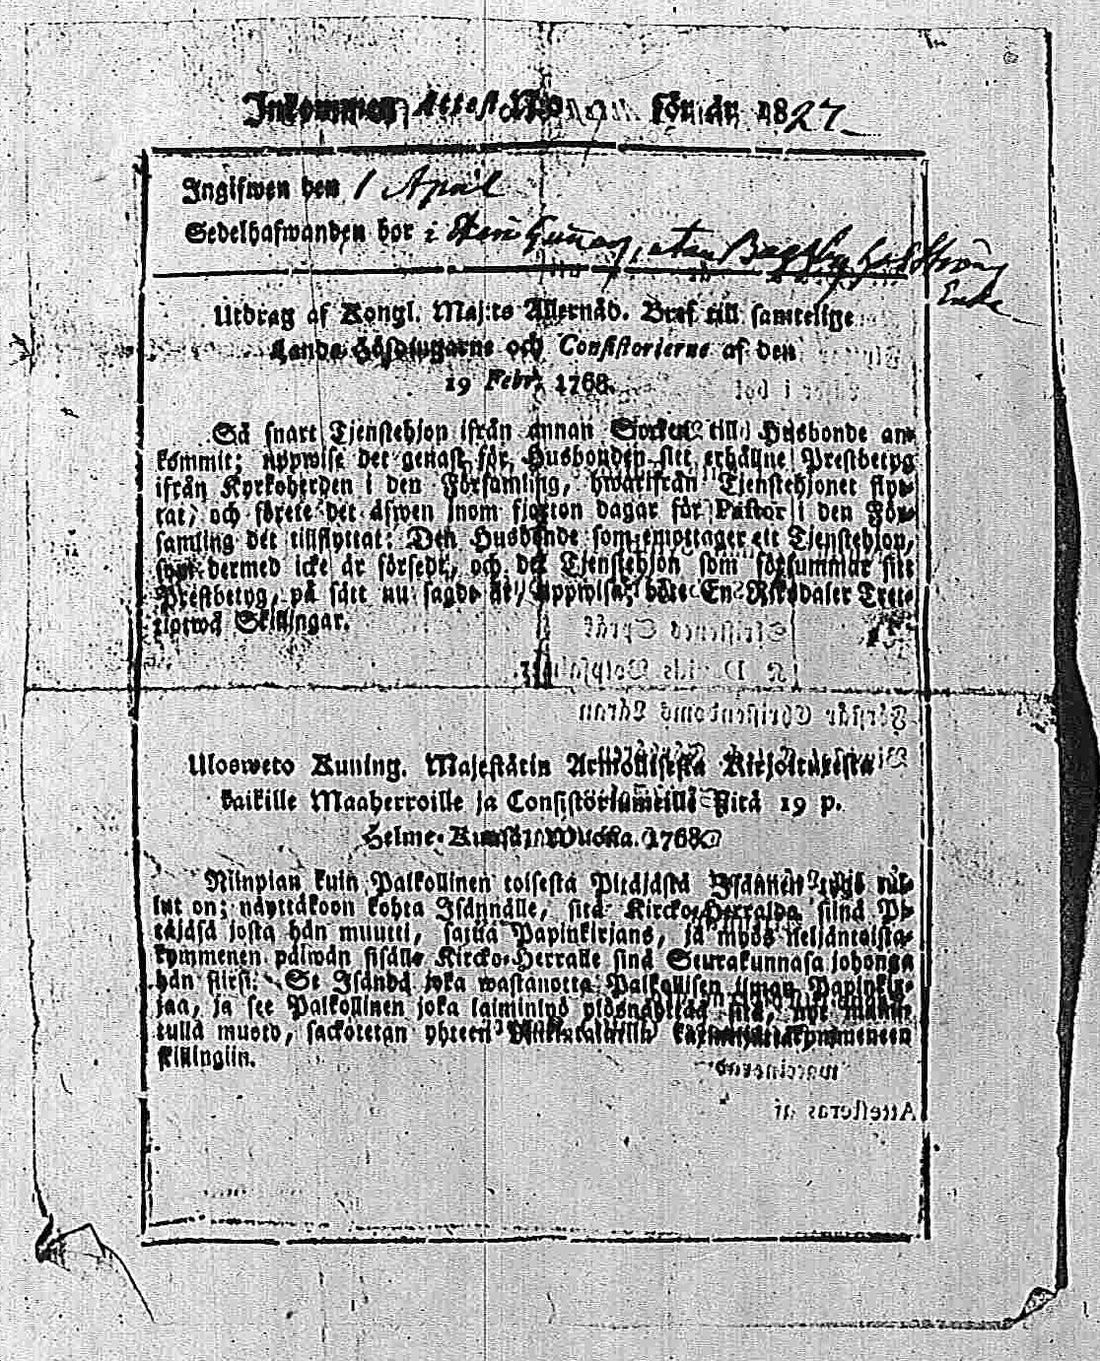 Inkommen Attest N:o för år 1827
Ingifwen den 1 April
Sedelhafwanden bor i
Enka
Utdrag af Kongl. Maj:ts Allernåd. Bref till samtelige
Lands Höfdingarne och Consistorierne af den
19 Febr. 1768.
Så snart Tjenstehjon ifrån annan Socken till Husbonde an-
kommit; uppwise det genast för Husbonden sitt erhållne Prestbetyg
ifrån Kyrkoherden i den Församling, hwarifrån Tjenstehjonet flyt-
tat, och förete det äfwen inom fjorton dagar för Pastor i den För-
samling det tillflyttat: Den Husbonde som emottager ett Tjenstehjon,
som dermed icke är försedt, och det Tjenstehjon som försummar sitt
Prestbetyg, på sätt nu sagdt är, uppwisa, böte En Riksdaler Tret-
tiotwå Skillingar.
Ulosweto Kuning. Majestätin Armollisesta Kirjoituxesta
kaikille Maaherroille ja Consistöriumeille Sitä 19 p.
Helme-Kuusa Wuonna 1768
Niinpian kuin Palkollinen toisesta Pitäjästä Isännen tygö tul-
lut on; näyttäköön kohta Isännälle, sitä Kircko-Herralda siinä Pi-
täjäsä josta hän muutti, saatua Papinkirjans, ja myös neljäntoista-
kymmenen päiwän sisälle Kircko-Herralle sinä Seurakunnasa johonga
hän siirsi: Se Isändä joka wastanotta Palkollisen ilman Papinkir-
jaa, ja see Palkollinen joka laiminlyö ylösnäyttää sitä, nyt mainit-
tulla muoto, sackotetan yhteen
killingiin.
Attesteras af